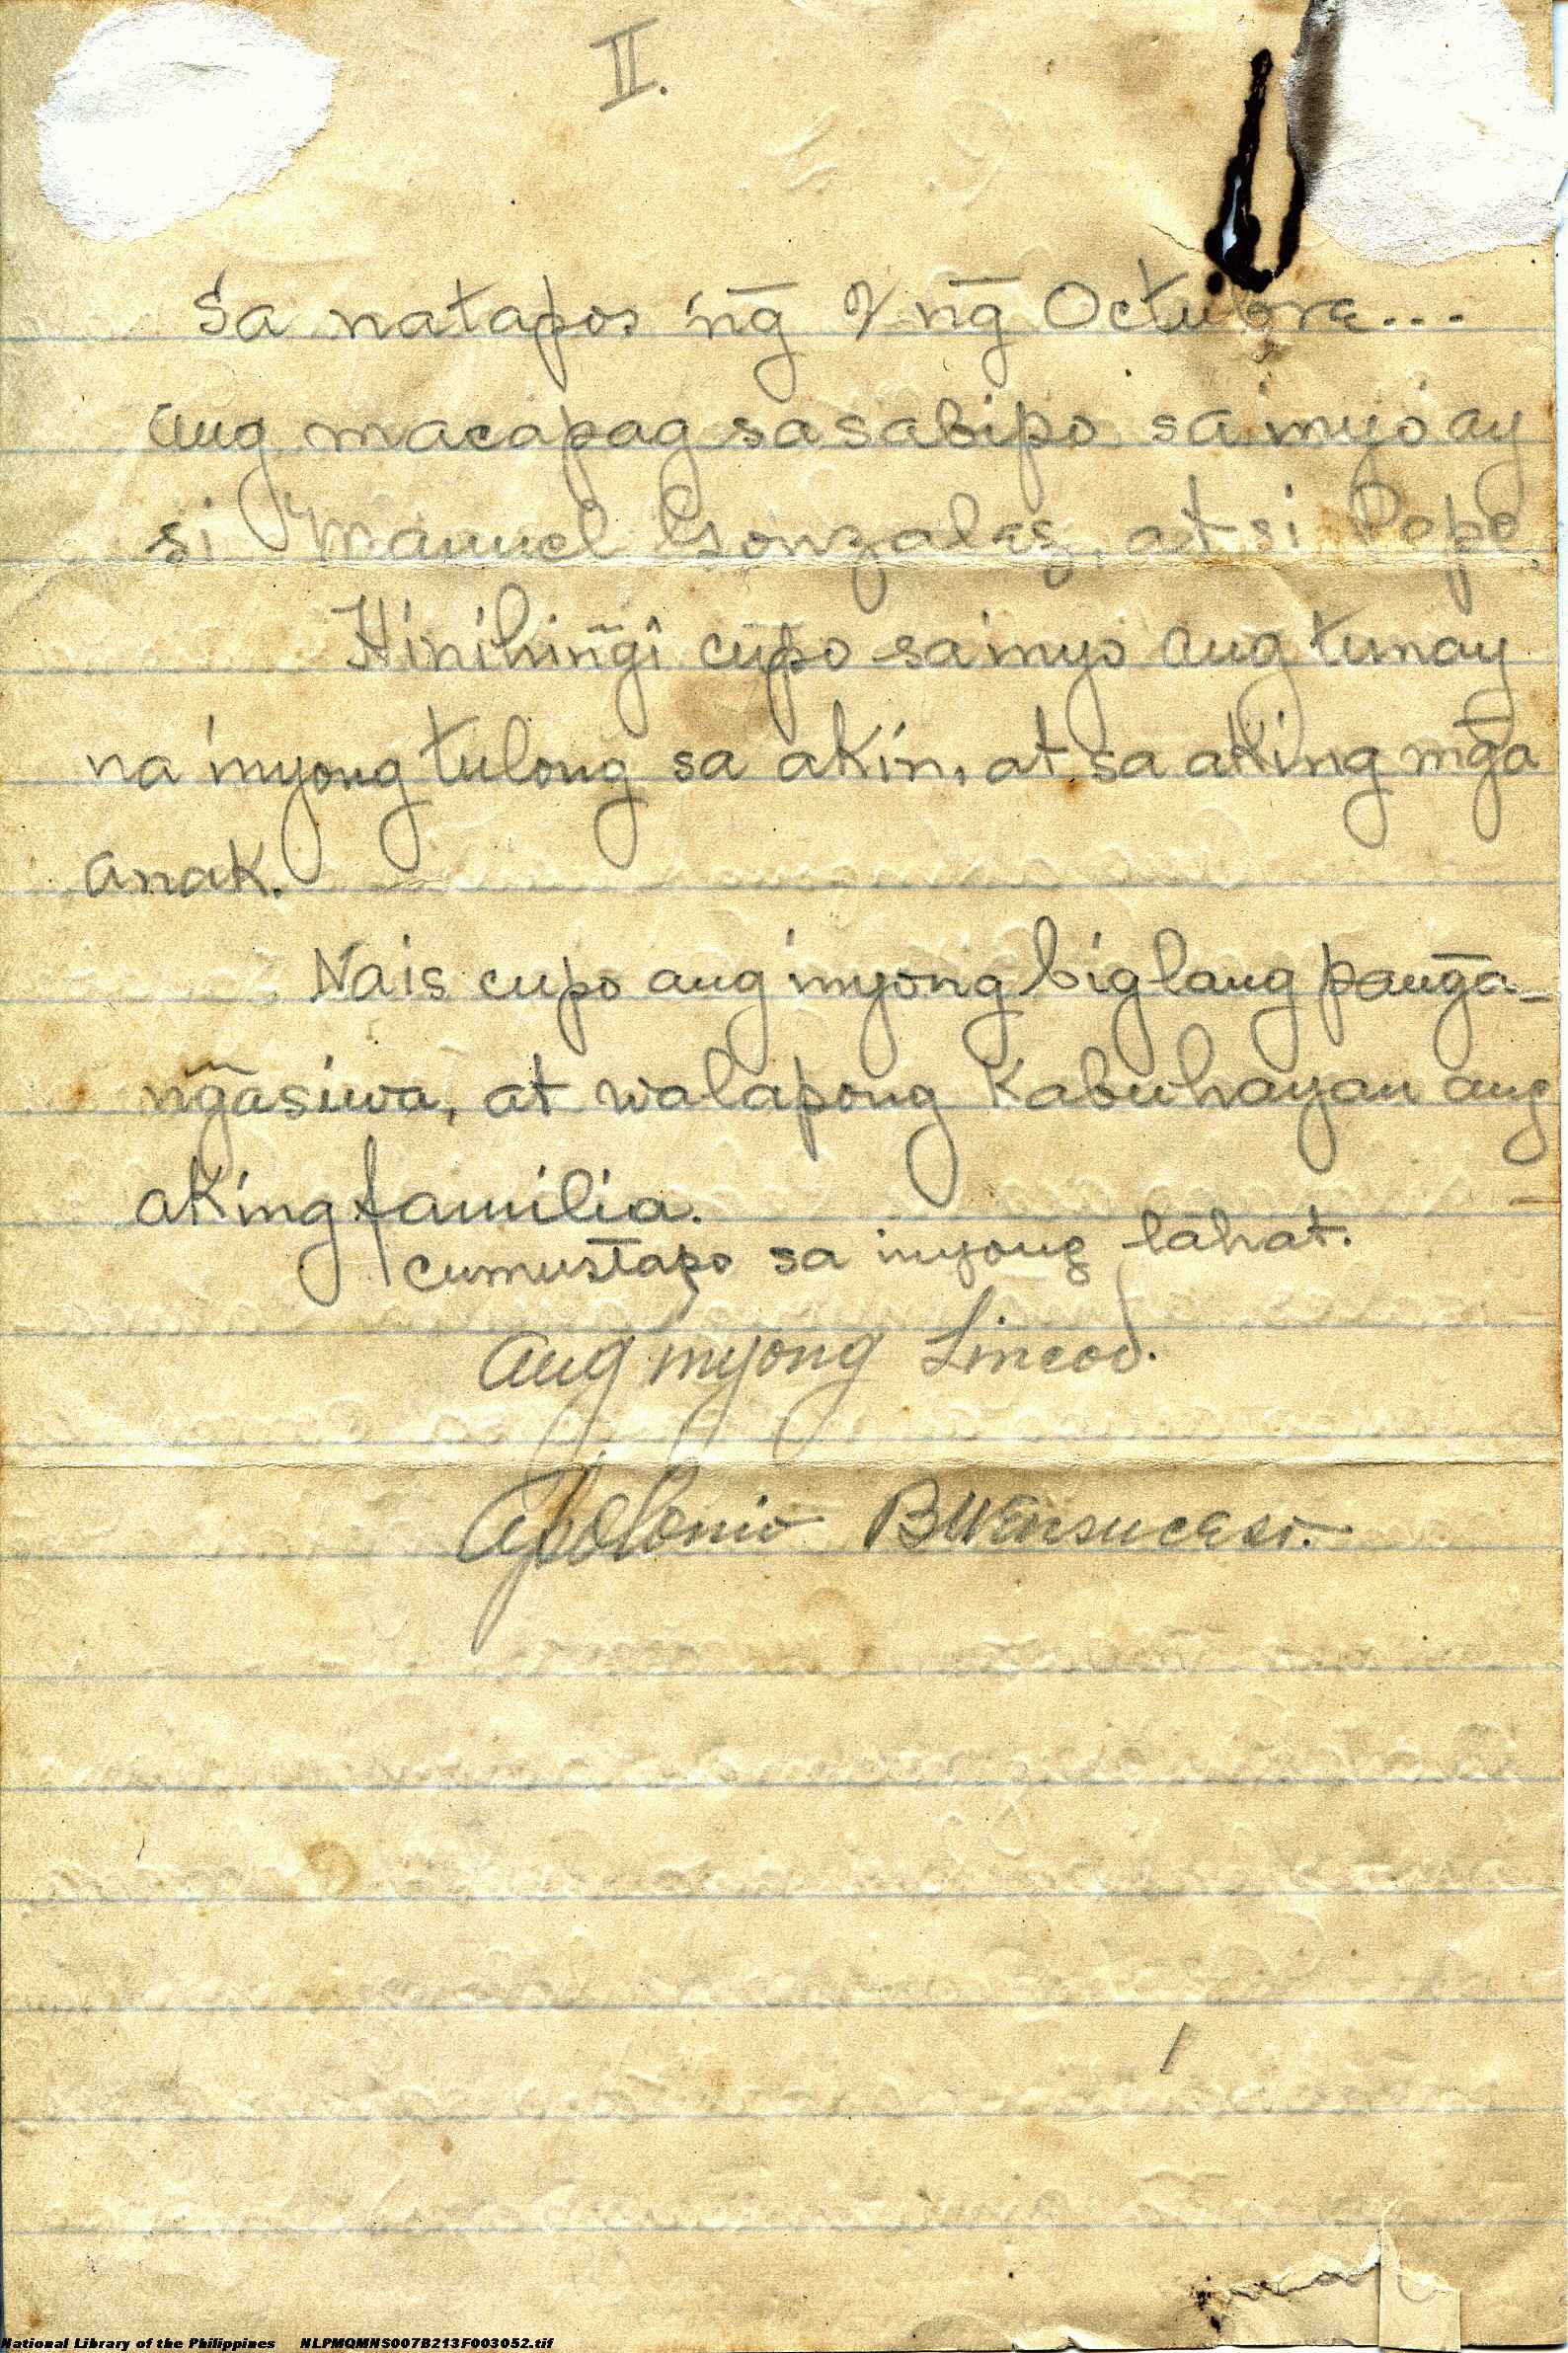 II.
Sa natapos n͠g 2 n͠g Octubre...
ang macapag sasabipo sa inyo ay
si Manuel Gonzales, at si Pepe
Hinihin͠gî cupo sainyo ang tunay
na inyong tulong sa akin, at sa aking mg̃a
anak.
Nais cupo ang inyong biglang pang̃a-
ng̃asiwa, at walapong Kabuhayan ang
aking familia.
cumustapo sa inyong lahat.
Ang inyong Lincod.
Apolonio Buensuceso.
National Library of the Philippines NLPMQMNS007B213F003052.tif